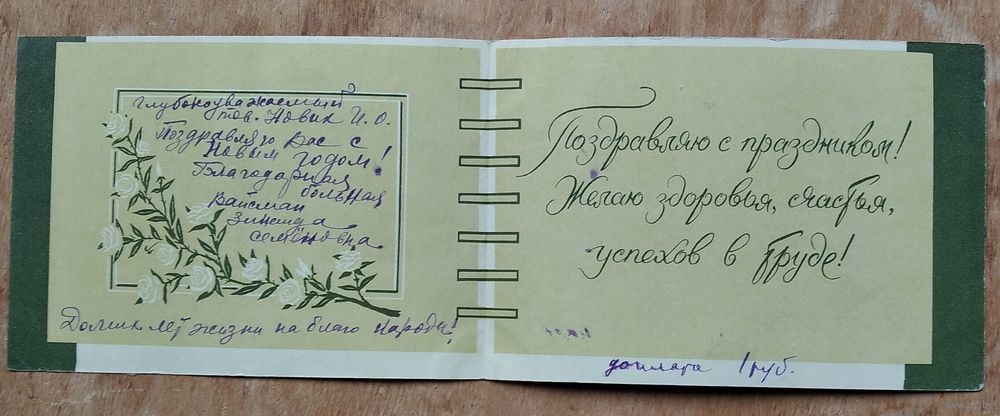 Глубокоуважаемый
тов. Новик И.О.
Поздравляю Вас с
Новым годом!
Благодарная
больная
Вайсман
Зинаида
Семёновна
Долгих лет жизни на благо народа!
Поздравляю с праздником!
Желаю здоровья, счастья,
успехов в труде!
доплата 1 руб.